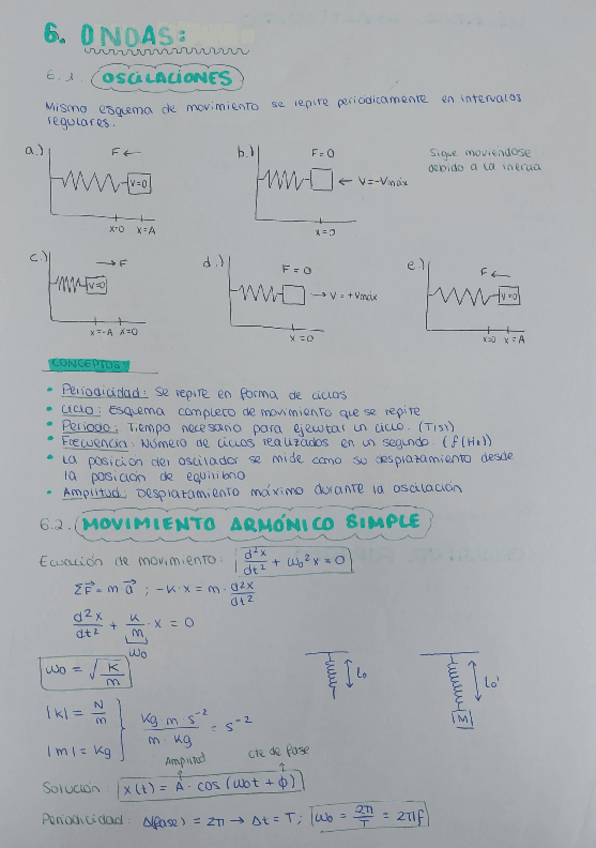 6. ONDAS:
6.1. OSCILACIONES
Mismo esquema de movimiento se repite periódicamente en intervalos
regulares.
a.) F ← V=0 x=0 x=A
b.) F=0 ← V=-Vmáx x=0
Sigue moviéndose
debido a la inercia
c.) → F V=0 x=-A x=0
d.) F=0 → V=+Vmáx x=0
e.) F ← V=0 x=0 x=A
CONCEPTOS:
• Periodicidad: Se repite en forma de ciclos
• Ciclo: Esquema completo de movimiento que se repite
• Periodo: Tiempo necesario para ejecutar un ciclo. (T(s))
• Frecuencia: Número de ciclos realizados en un segundo. (f(Hz))
• La posición del oscilador se mide como su desplazamiento desde
la posición de equilibrio
• Amplitud: Desplazamiento máximo durante la oscilación
6.2. MOVIMIENTO ARMÓNICO SIMPLE
Ecuación de movimiento: d²x/dt² + ω₀²x = 0
ΣF⃗ = m a⃗ ; -K·x = m · d²x/dt²
d²x/dt² + K/m · x = 0
ω₀
ω₀ = √K/m
l₀ l₀' M
|k| = N/m
|m| = Kg
Kg m · s⁻² / m · Kg = s⁻²
Amplitud cte de fase
Solución: x(t) = A · cos (ω₀t + ϕ)
Periodicidad: Δ(fase) = 2π → Δt = T; ω₀ = 2π/T = 2πf